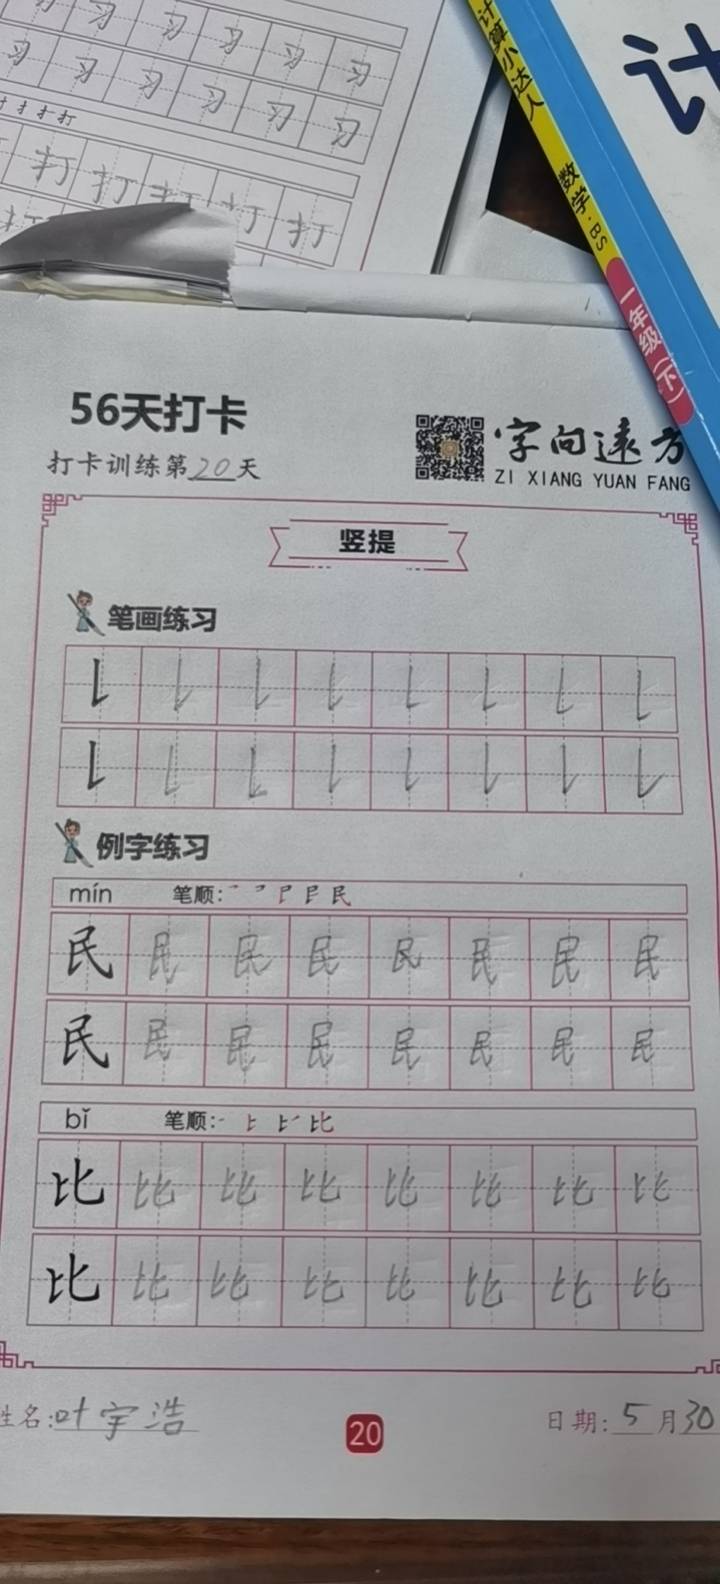 习 习 习 习 习
习 习 习 习 习 习
打
打 打 打 打 打
计算小达人 数学·BS 一年级(下)
计
56天打卡
打卡训练第20天
字向远方
ZI XIANG YUAN FANG
竖提
笔画练习
例字练习
mín 笔顺: 民
民 民 民 民 民 民 民 民
民 民 民 民 民 民 民 民
bǐ 笔顺: 比
比 比 比 比 比 比 比 比
比 比 比 比 比 比 比 比
姓名:叶宇浩
20
日期:5月30